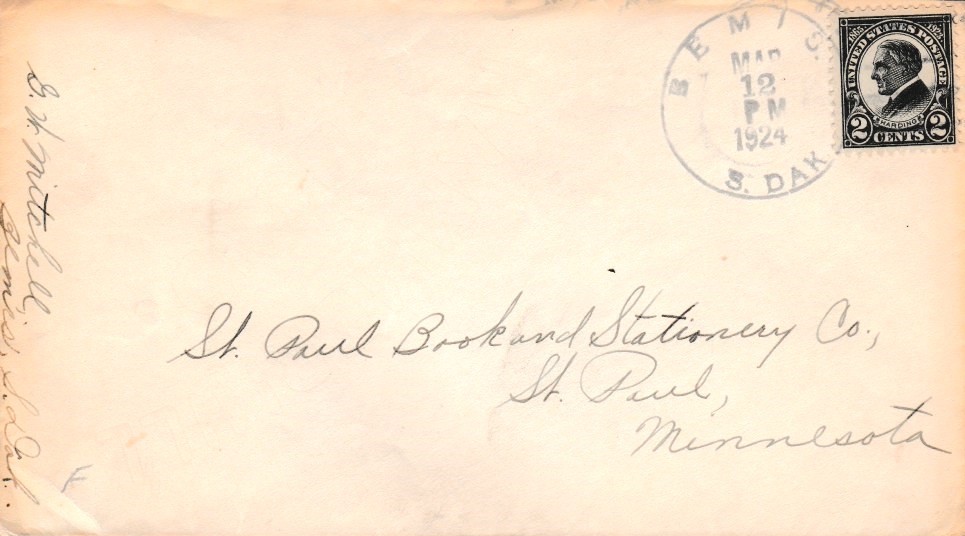 BEMIS
MAR
12
PM
1924
S. DAK
1865-1923
UNITED STATES POSTAGE
HARDING
2 CENTS 2
St. Paul Book and Stationery Co.,
St. Paul,
Minnesota
Mitchell,
Bemis, S. Dak.